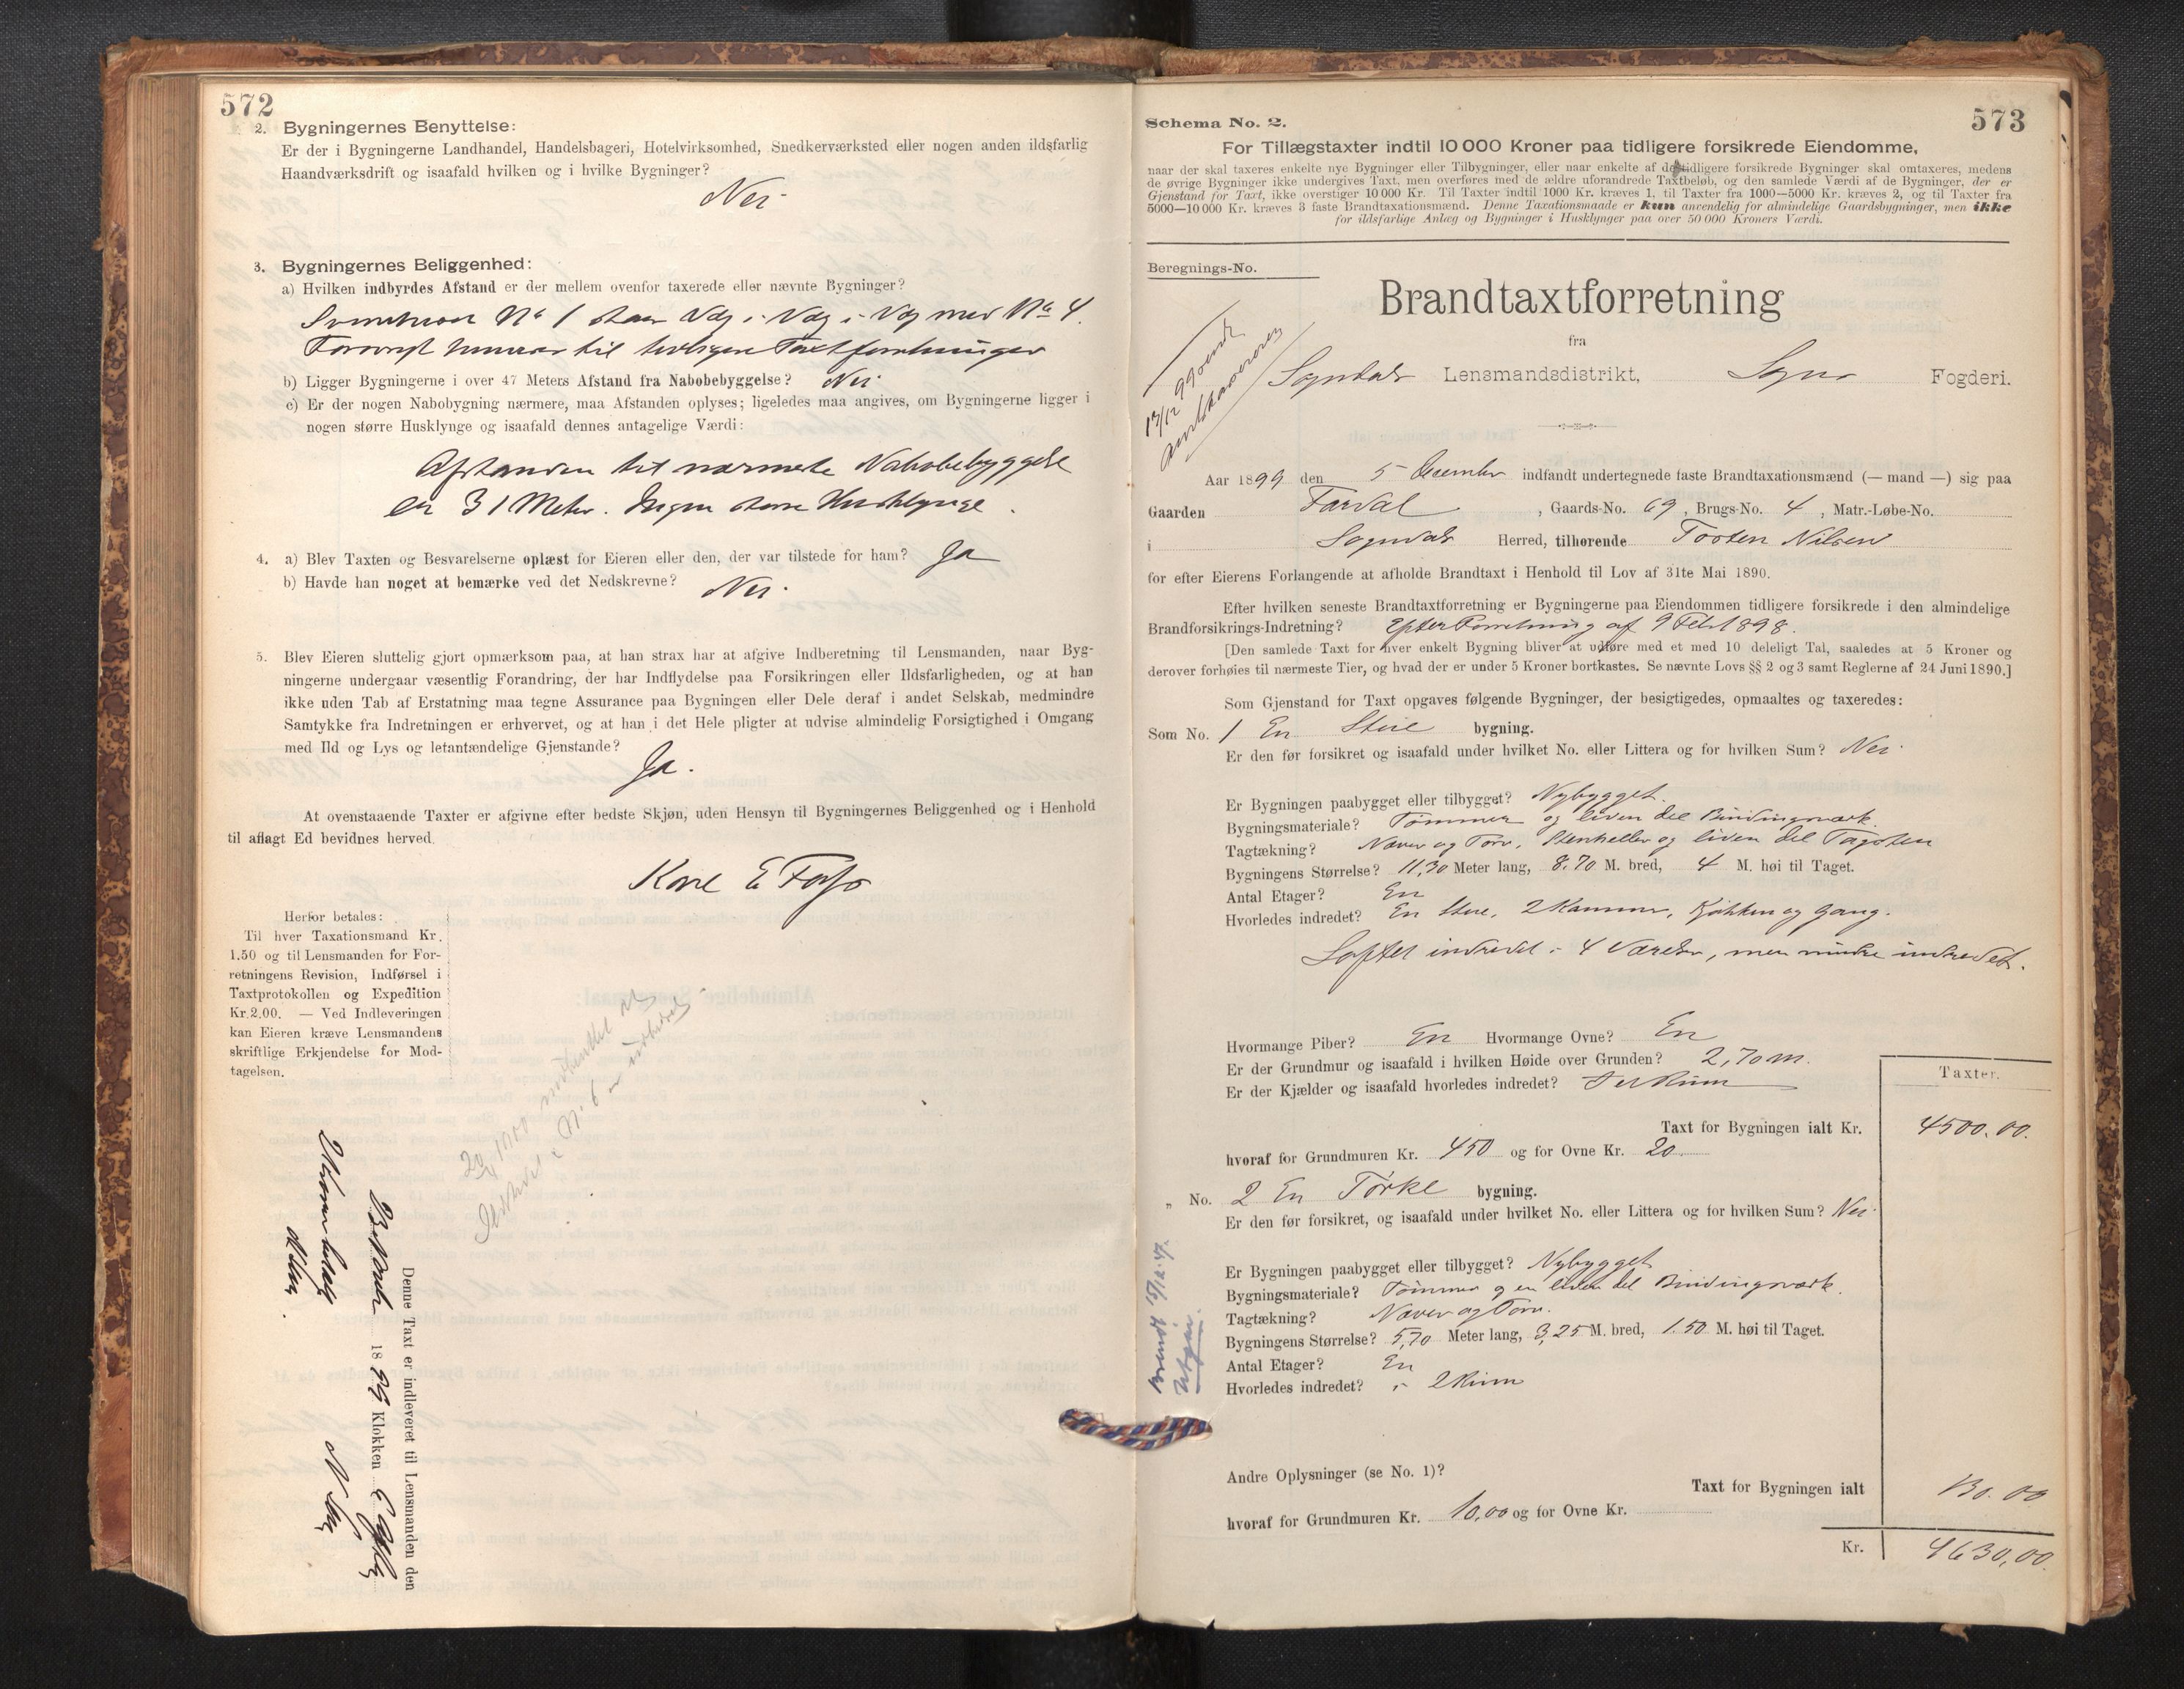 572
2. Bygningernes Benyttelse:
Er der i Bygningerne Landhandel, Handelsbageri, Hotelvirksomhed, Snedkerværksted eller nogen anden ildsfarlig
Haandværksdrift og isaafald hvilken og i hvilke Bygninger?
Nei
3. Bygningernes Beliggenhed:
a) Hvilken indbyrdes Afstand er der mellem ovenfor taxerede eller nævnte Bygninger?
No 1 staar Væg i Væg med No 4.
Forøvrigt til tidligere Taxtforretninger
b) Ligger Bygningerne i over 47 Meters Afstand fra Nabobebyggelse? Nei
c) Er der nogen Nabobygning nærmere, maa Afstanden oplyses; ligeledes maa angives, om Bygningerne ligger i
nogen større Husklynge og isaafald dennes antagelige Værdi:
Afstanden til nærmeste Nabobebyggelse
er 31 Meter. Ingen større Husklynge.
4. a) Blev Taxten og Besvarelserne oplæst for Eieren eller den, der var tilstede for ham? Ja
b) Havde han noget at bemærke ved det Nedskrevne? Nei.
5. Blev Eieren sluttelig gjort opmærksom paa, at han strax har at afgive Indberetning til Lensmanden, naar Byg-
ningerne undergaar væsentlig Forandring, der har Indflydelse paa Forsikringen eller Ildsfarligheden, og at han
ikke uden Tab af Erstatning maa tegne Assurance paa Bygningen eller Dele deraf i andet Selskab, medmindre
Samtykke fra Indretningen er erhvervet, og at han i det Hele pligter at udvise almindelig Forsigtighed i Omgang
med Ild og Lys og letantændelige Gjenstande?
Ja.
At ovenstaaende Taxter er afgivne efter bedste Skjøn, uden Hensyn til Bygningernes Beliggenhed og i Henhold
til aflagt Ed bevidnes herved.
E
Herfor betales:
Til hver Taxationsmand Kr.
1.50 og til Lensmanden for For-
retningens Revision, Indførsel i
Taxtprotokollen og Expedition
Kr.2.00. — Ved Indleveringen
kan Eieren kræve Lensmandens
skriftlige Erkjendelse for Mod-
tagelsen.
No 6
Denne Taxt er indleveret til Lensmanden den
1899 Klokken
2 Kroner betalt
573
Schema No. 2.
For Tillægstaxter indtil 10 000 Kroner paa tidligere forsikrede Eiendomme,
naar der skal taxeres enkelte nye Bygninger eller Tilbygninger, eller naar enkelte af de tidligere forsikrede Bygninger skal omtaxeres, medens
de øvrige Bygninger ikke undergives Taxt, men overføres med de ældre uforandrede Taxtbeløb, og den samlede Værdi af de Bygninger, der er
Gjenstand for Taxt, ikke overstiger 10 000 Kr. Til Taxter indtil 1000 Kr. kræves 1, til Taxter fra 1000—5000 Kr. kræves 2, og til Taxter fra
5000—10 000 Kr. kræves 3 faste Brandtaxationsmænd. Denne Taxationsmaade er kun anvendelig for almindelige Gaardsbygninger, men ikke
for ildsfarlige Anlæg og Bygninger i Husklynger paa over 50 000 Kroners Værdi.
Beregnings-No.
Brandtaxtforretning
fra
Sogndals Lensmandsdistrikt, Sogns Fogderi.
Aar 1899 den 5 December indfandt undertegnede faste Brandtaxationsmænd (— mand —) sig paa
Gaarden , Gaards-No. 69, Brugs-No. 4, Matr.-Løbe-No.
i Sogndals Herred, tilhørende Torsten Nilsen
for efter Eierens Forlangende at afholde Brandtaxt i Henhold til Lov af 31te Mai 1890.
Efter hvilken seneste Brandtaxtforretning er Bygningerne paa Eiendommen tidligere forsikrede i den almindelige
Brandforsikrings-Indretning? Efter Forretning af 9 Feb. 1898.
[Den samlede Taxt for hver enkelt Bygning bliver at udføre med et med 10 deleligt Tal, saaledes at 5 Kroner og
derover forhøies til nærmeste Tier, og hvad der er under 5 Kroner bortkastes. Se nævnte Lovs §§ 2 og 3 samt Reglerne af 24 Juni 1890.]
Som Gjenstand for Taxt opgaves følgende Bygninger, der besigtigedes, opmaaltes og taxeredes:
Som No. 1 En Stue bygning.
Er den før forsikret og isaafald under hvilket No. eller Littera og for hvilken Sum? Nei.
Er Bygningen paabygget eller tilbygget? Nybygget.
Bygningsmateriale? Tømmer og liden del Bindingsværk.
Tagtækning? Næver og Torv, Stenheller og liden del Tagsten
Bygningens Størrelse? 11,30 Meter lang, 8,70 M. bred, 4 M. høi til Taget.
Antal Etager? En
Hvorledes indredet? En Stue, 2 Kammer, Kjøkken og Gang.
Loftet indredet i 4 Værelser, men mindre indredet.
Hvormange Piber? En Hvormange Ovne? En
Er der Grundmur og isaafald i hvilken Høide over Grunden? 2,70 m.
Er der Kjælder og isaafald hvorledes indredet? I et Rum
Taxter.
Taxt for Bygningen ialt Kr. 4500.00.
hvoraf for Grundmuren Kr. 450 og for Ovne Kr. 20.
„ No. 2 En Tørke bygning.
Er den før forsikret, og isaafald under hvilket No. eller Littera og for hvilken Sum? Nei.
Er Bygningen paabygget eller tilbygget? Nybygget
Bygningsmateriale? Tømmer og en liden del Bindingsværk.
Tagtækning? Næver og Torv.
Bygningens Størrelse? 5,70 Meter lang, 3,25 M. bred, 1.50 M. høi til Taget.
Antal Etager? En
Hvorledes indredet? i 2 Rum
Andre Oplysninger (se No. 1)?
Taxt for Bygningen ialt 130.00
hvoraf for Grundmuren Kr. 10,00 og for Ovne Kr.
Kr. 4630,00